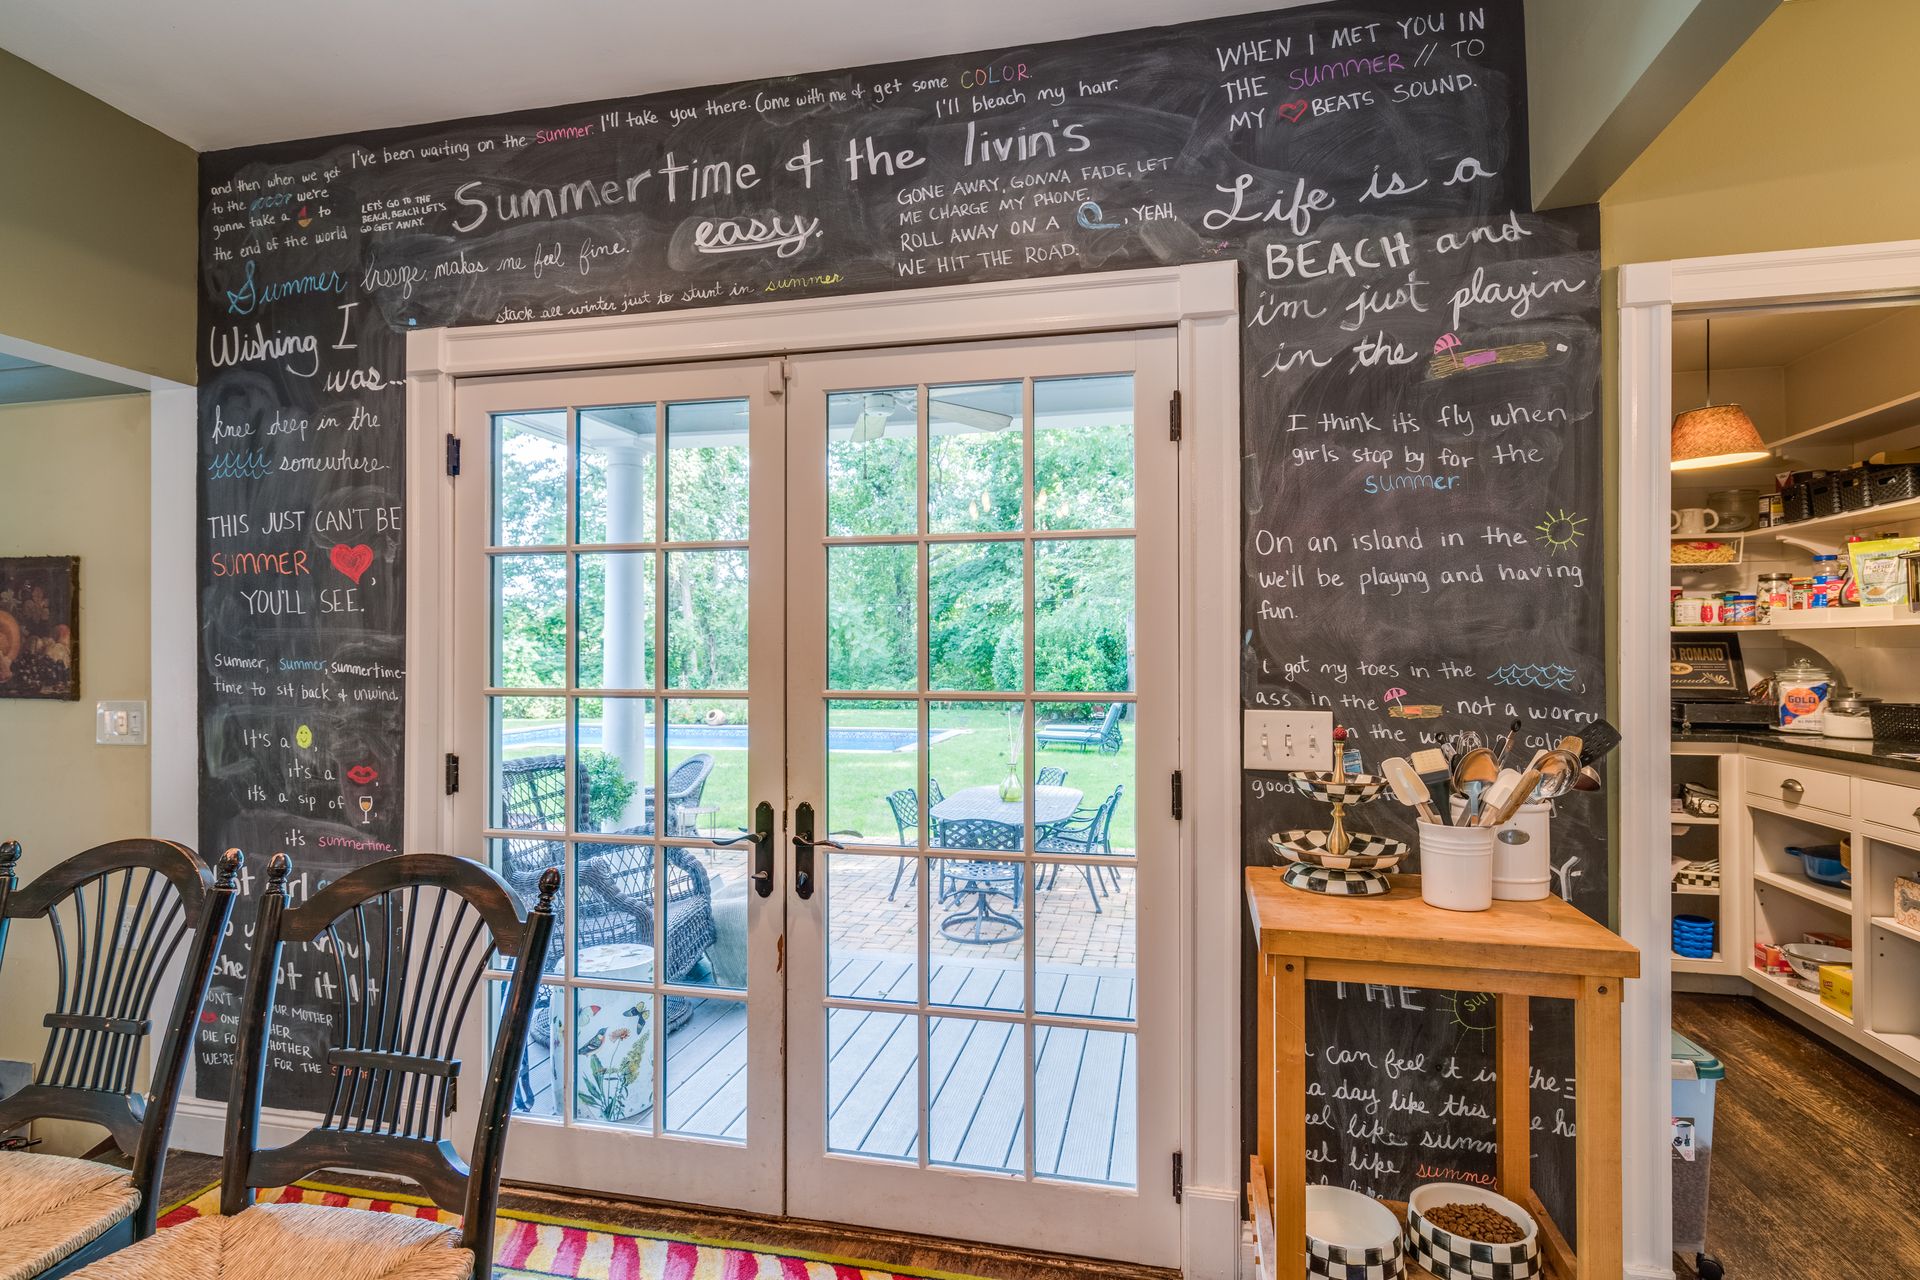 I've been waiting on the summer. I'll take you there. Come with me & get some COLOR.
I'll bleach my hair.
WHEN I MET YOU IN
THE SUMMER // TO
MY BEATS SOUND.
and then when we get
to the we're
gonna take a to
the end of the world
LET'S GO TO THE
BEACH, BEACH LET'S
GO GET AWAY.
Summertime & the livin's
easy.
GONE AWAY, GONNA FADE, LET
ME CHARGE MY PHONE.
ROLL AWAY ON A , YEAH,
WE HIT THE ROAD.
Summer breeze, makes me feel fine.
stack all winter just to stunt in summer
Life is a
BEACH and
i'm just playin
in the .
Wishing I
was...
knee deep in the
somewhere.
THIS JUST CAN'T BE
SUMMER ,
YOU'LL SEE.
summer, summer, summertime-
time to sit back & unwind
It's a ,
it's a
it's a sip of ,
it's summertime.
I think it's fly when
girls stop by for the
summer.
On an island in the
we'll be playing and having
fun.
I got my toes in the ,
ass in the not a worry
in the cold
good
girl
she it
MOTHER
DIE
FOR THE
ROMANO
GOLD
THE
can feel it in the
a day like this,
like
like summer